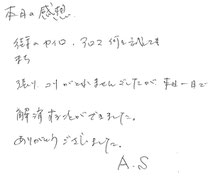 本日の感想
従来のカイロ、アロマ何を試しても
張り、コリがとれませんでしたが 本日一日で
解消することができました。
ありがとうございました。
A.S